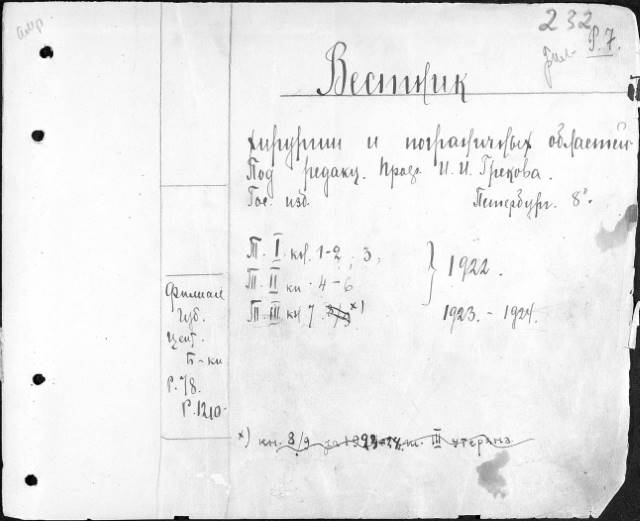 232
Р. 7.
Вестник
хирургии и пограничных областей
Под редакц. Проф. И. И. Грекова.
Гос. изд. Петербург. 8°.
Т. I. кн. 1-2, 3, } 1922.
Т. II кн. 4-6
Т. III кн 7. 8/9 х) 1923. - 1924.
Филиал
Губ.
Цент.
Б-ки
Р. 78.
Р. 1210.
х) кн. 8/9 за 1923-24. т. III утеряна